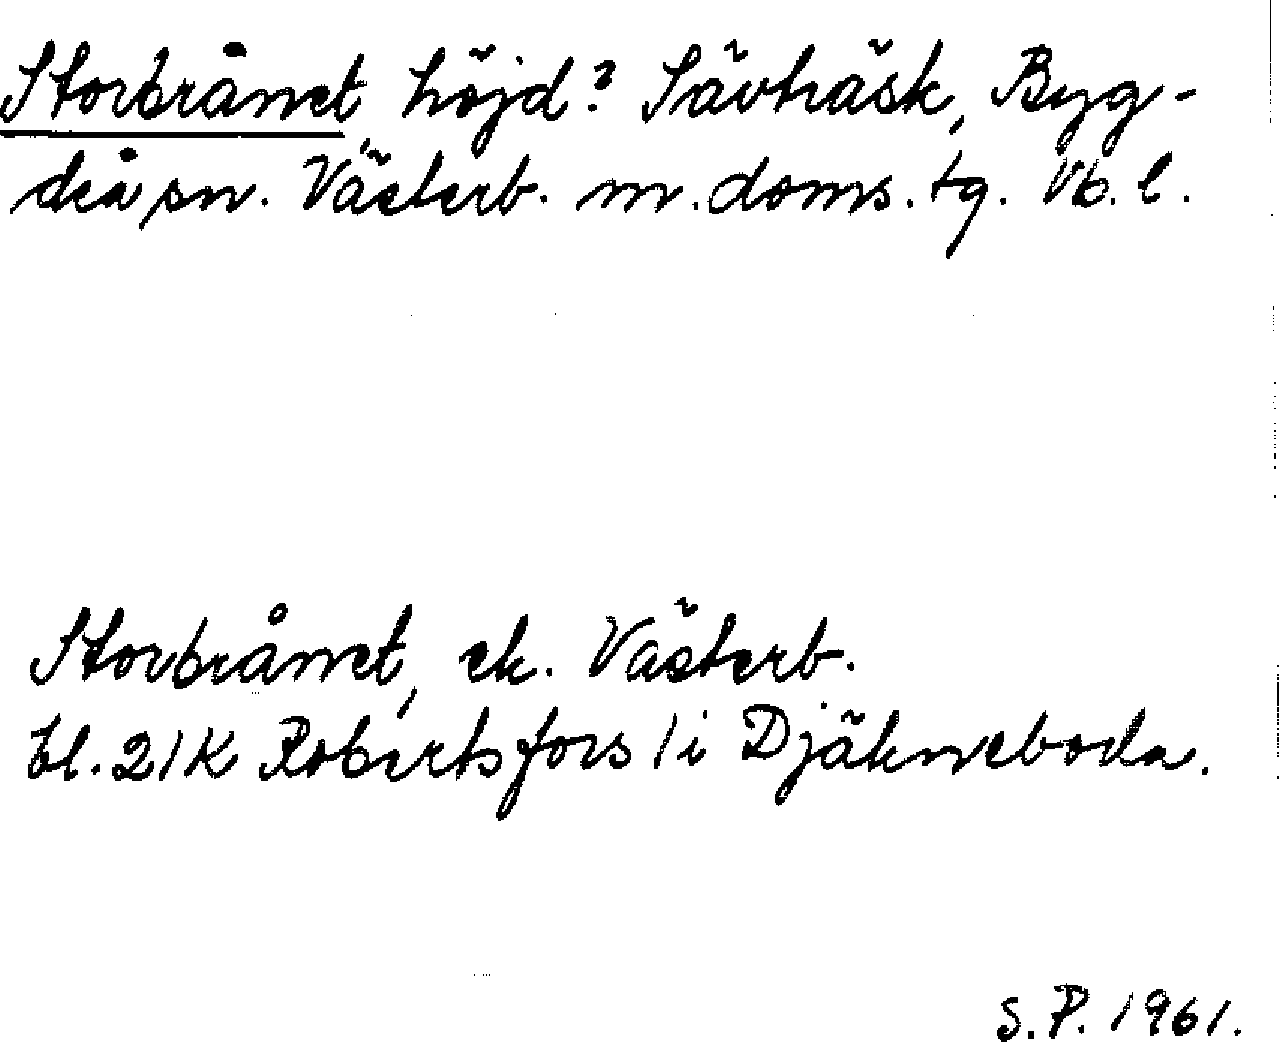 Storbrånet, höjd? Sävträsk, Byg-
deå sn. Västerb. m. doms. tg. Vb. l.
Storbrånet, ek. Västerb.
bl. 21K Robertsfors / i Djäkneboda.
S. P. 1961.